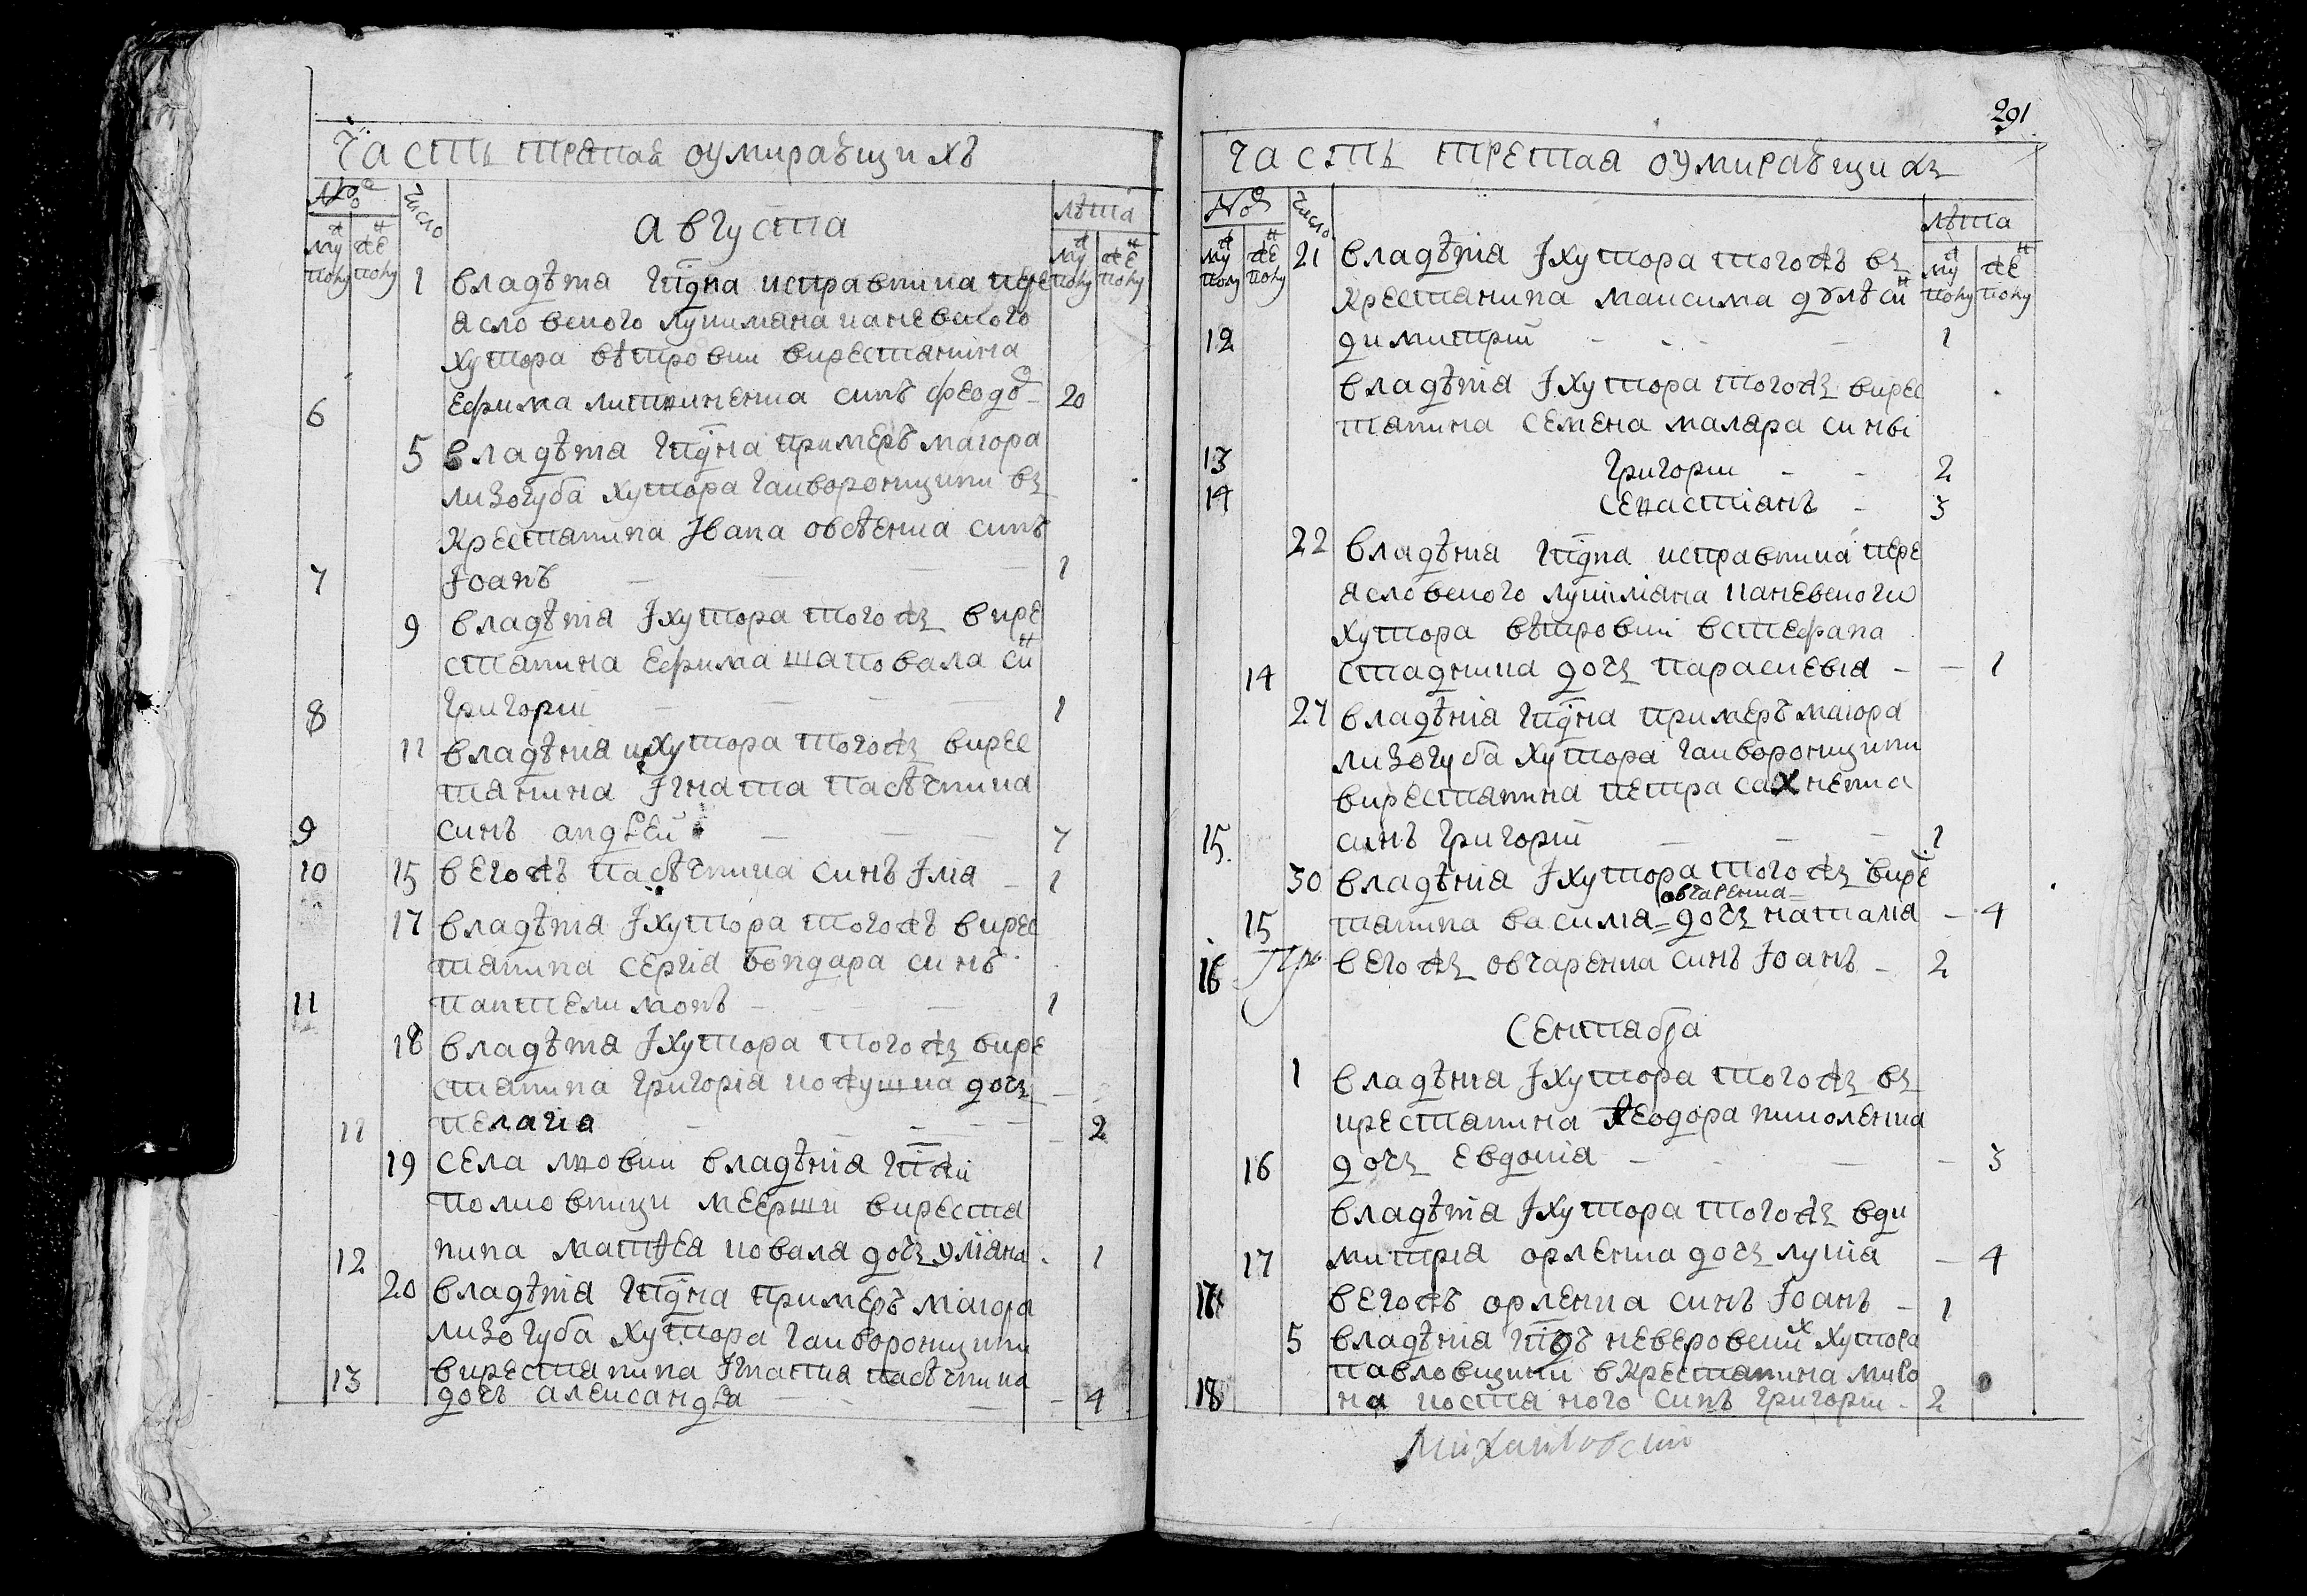 Часть третая оумиравщихъ
№ число
августа
лѣта
му же
полу полу
1 владѣнія гпдна исправника пере
ясловского лукімана каневского
хутора вѣтровки вкрестянина
6 Ефима синъ феодо 20
5 владѣнія гпдна примеръ маіора
лизогуба хутора гаиворонщини въ
крестянина Iвана овсѣенка синъ
7 Iоанъ — — — 1
9 владѣнія Iхутора того жъ вкре
стянина Ефима шаповала си
8 григорій — — — 1
11 владѣнія ихутора того жъ вкрес
тянина Iгната пасѣчника
9 синъ андрей — — — 7
10 15 вего жъ пасѣчника синъ Iлія — 1
17 владѣнія Iхутора того жъ вкрес
тянина сергія бондара синъ
11 пантелимонъ — — — 1
18 владѣнія Iхутора того жъ вкре
стянина григорія кожушка дочъ
11 пелагія — — — 2
19 села владѣнія гпжи
полковници меерши вкрестя
12 нина матѳея ковала дочъ уліана 1
20 владѣнія гпдна примеръ маіора
лизогуба хутора гаиворонщини
13 вкрестянина Iгнатія пасѣчника
дочъ александра — — — 4
291
Часть третая оумиравщихъ
№ число
лѣта
му же
полу полу
21 владѣнія Iхутора того жъ въ
крестянина максима си
12 димитрій — — — 1
владѣнія Iхутора того жъ вкрес
тянина семена маляра сины
13 григорій — — 2
14 севастіянъ — 3
22 владѣнія гпдна исправника пере
ясловского лукіміана каневского
хутора вѣтровки встефана
14 стадника дочъ параскевія — — 1
27 владѣнія гпдна примеръ маіора
лизогуба хутора гаиворонщини
вкрестянина петра сахненка
15 синъ григорій — — — 1
30 владѣнія Iхутора того жъ вкре
овчаренка
15 тянина василія = дочъ наталія — 4
16 вего жъ овчаренка синъ Iоанъ — 2
Сентабра
1 владѣнія Iхутора того жъ въ
крестянина ѳеодора николенка
16 дочъ евдокія — — — 3
владѣнія Iхутора того жъ вди
17 митрія орленка дочъ лукія — 4
17 вего жъ орленка синъ Iоанъ — 1
5 владѣнія гпдъ неверовских хутора
павловщини вкрестянина миро
18 на костяного синъ григорій — 2